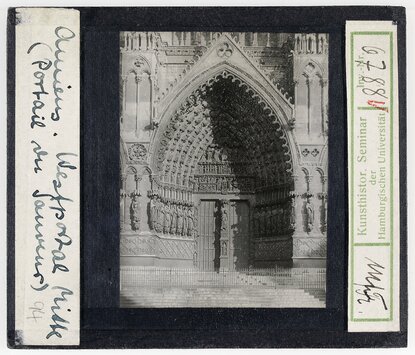 Amiens. Westportal Mitte
(Portail du Sauveur) 94
Kunsthistor. Seminar
der
Hamburgischen Universität
Inv. Nr.